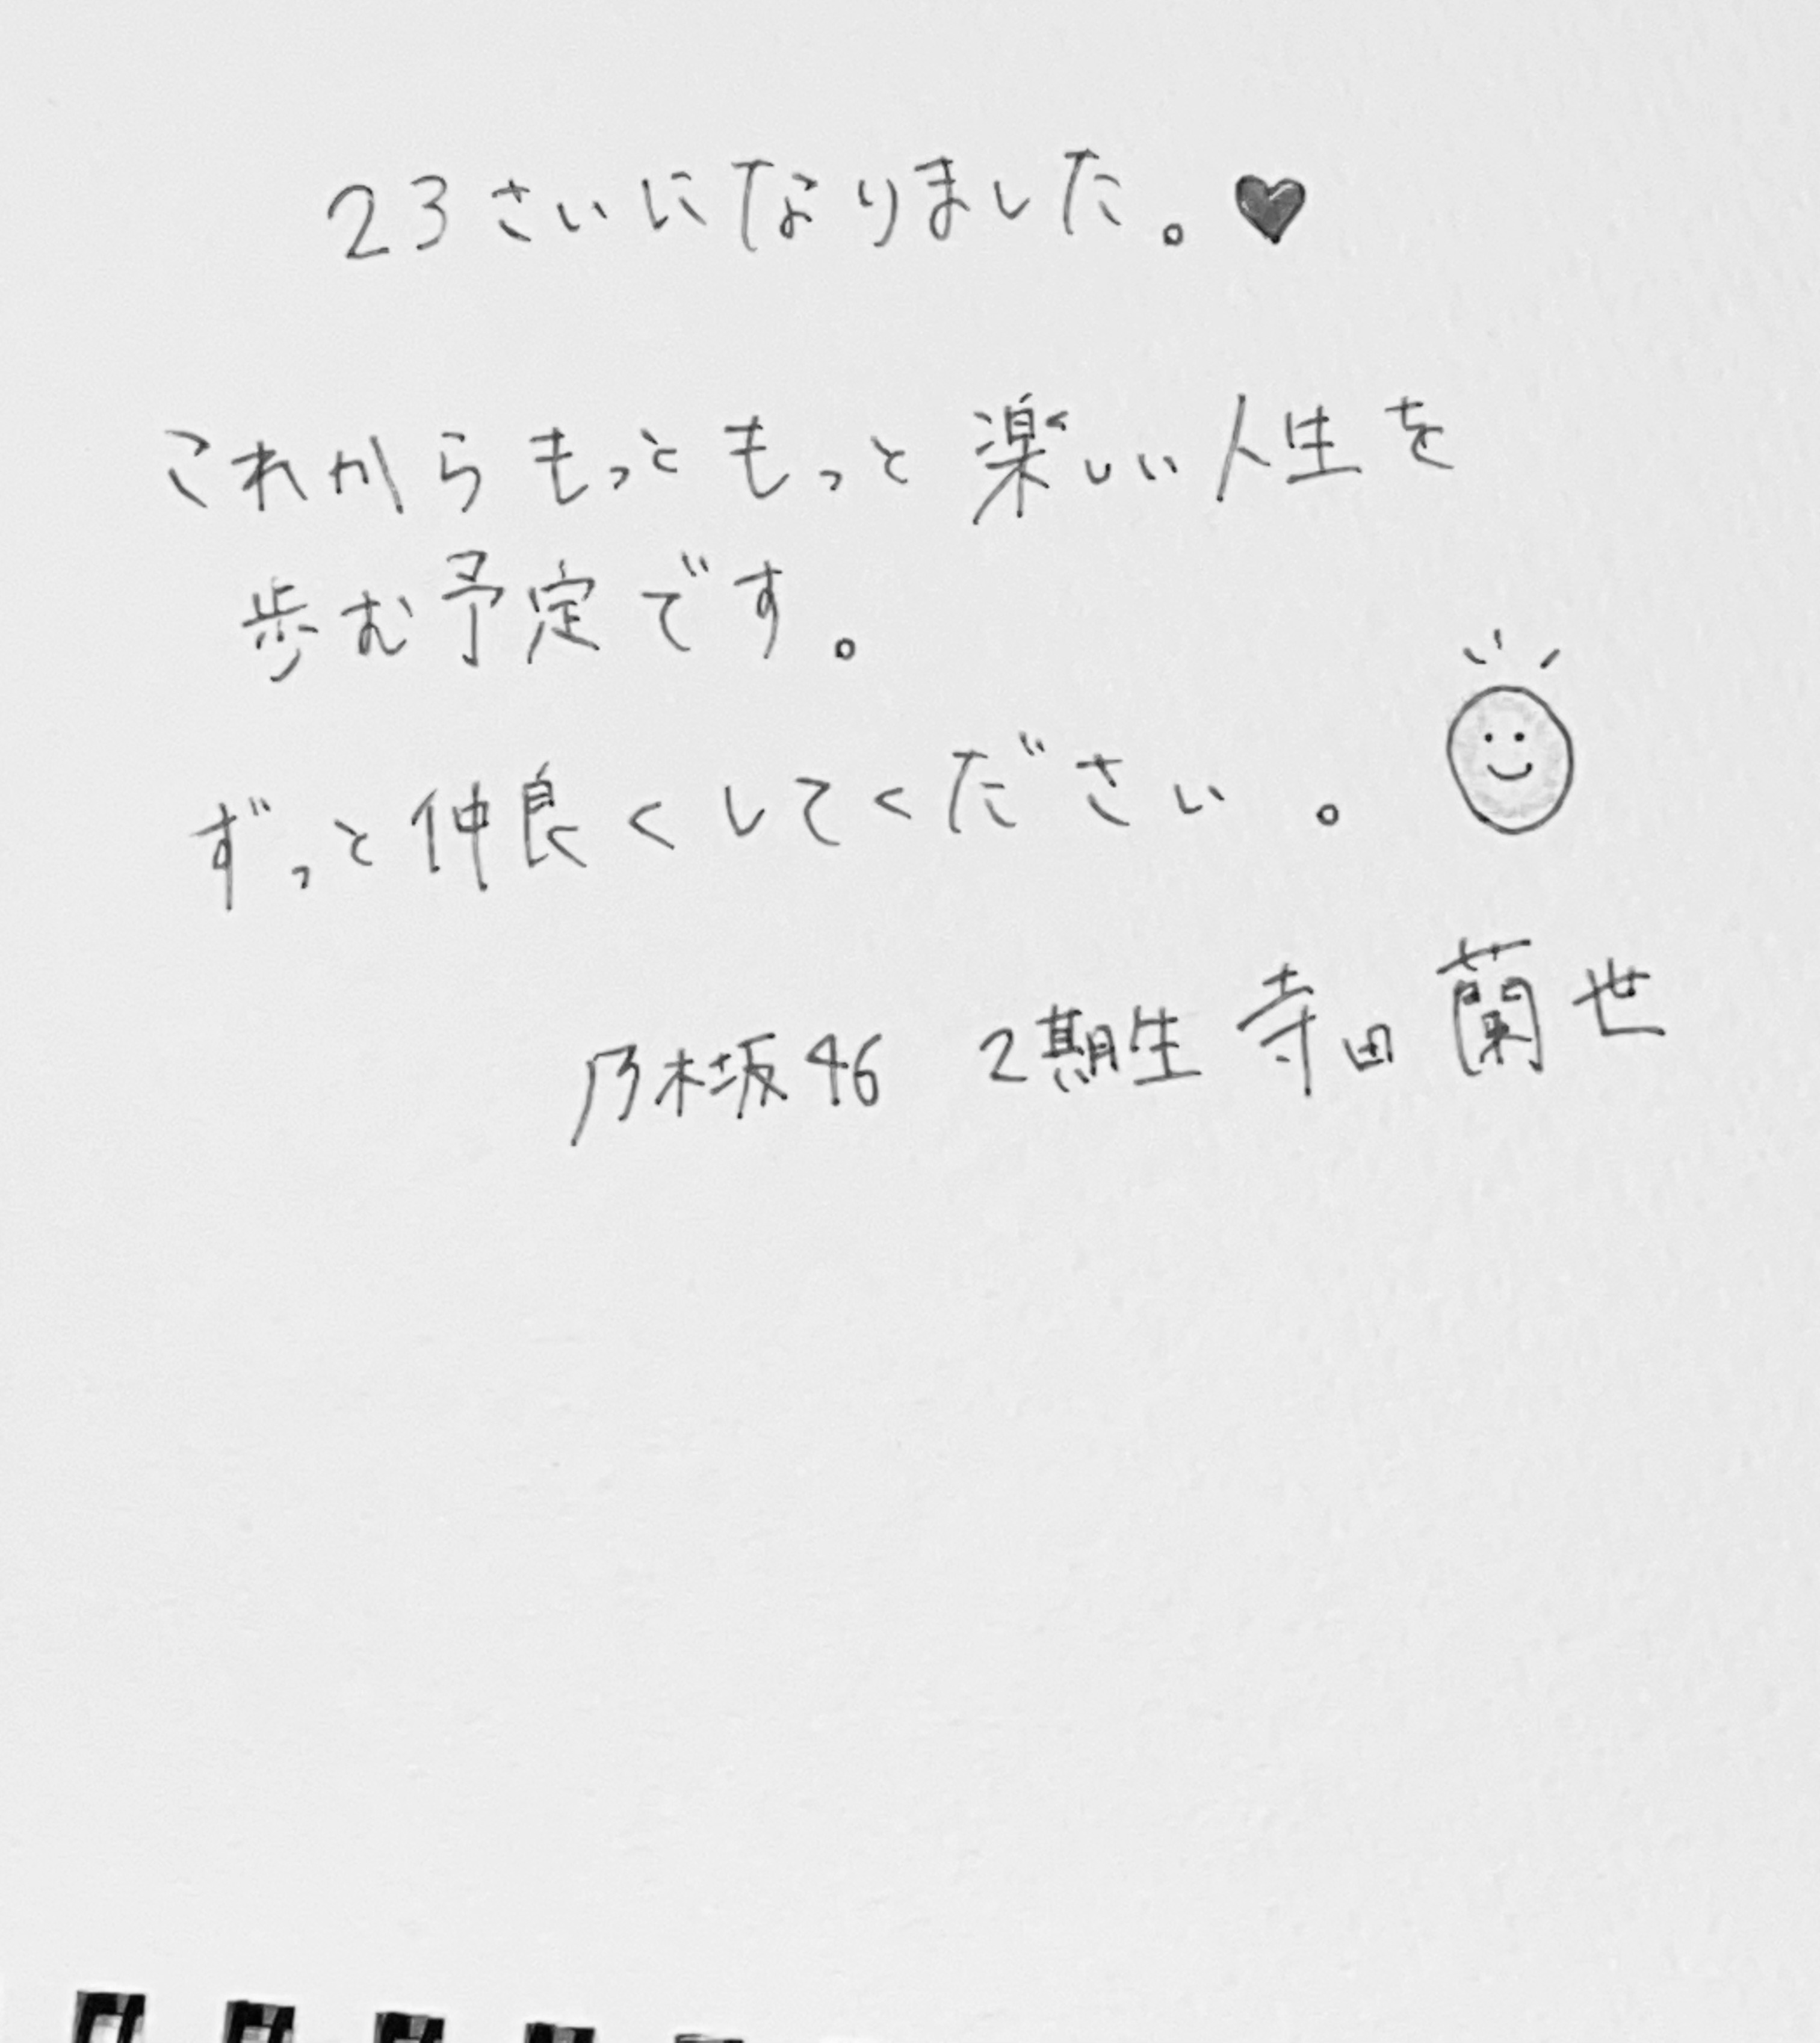 23さいになりました。♥
これからもっともっと楽しい人生を
歩む予定です。
ずっと仲良くしてください。
乃木坂46 2期生 寺田蘭世